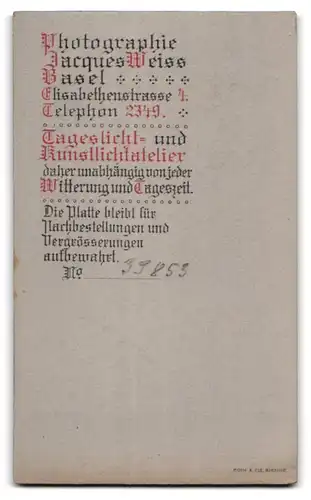 Photographie
Jacques Weiss
Basel
Elisabethenstrasse 4.
Telephon 2349.
Tageslicht= und
Kunstlichtatelier
daher unabhängig von jeder
Witterung und Tageszeit.
Die Platte bleibt für
Nachbestellungen und
Vergrösserungen
aufbewahrt.
No 33853